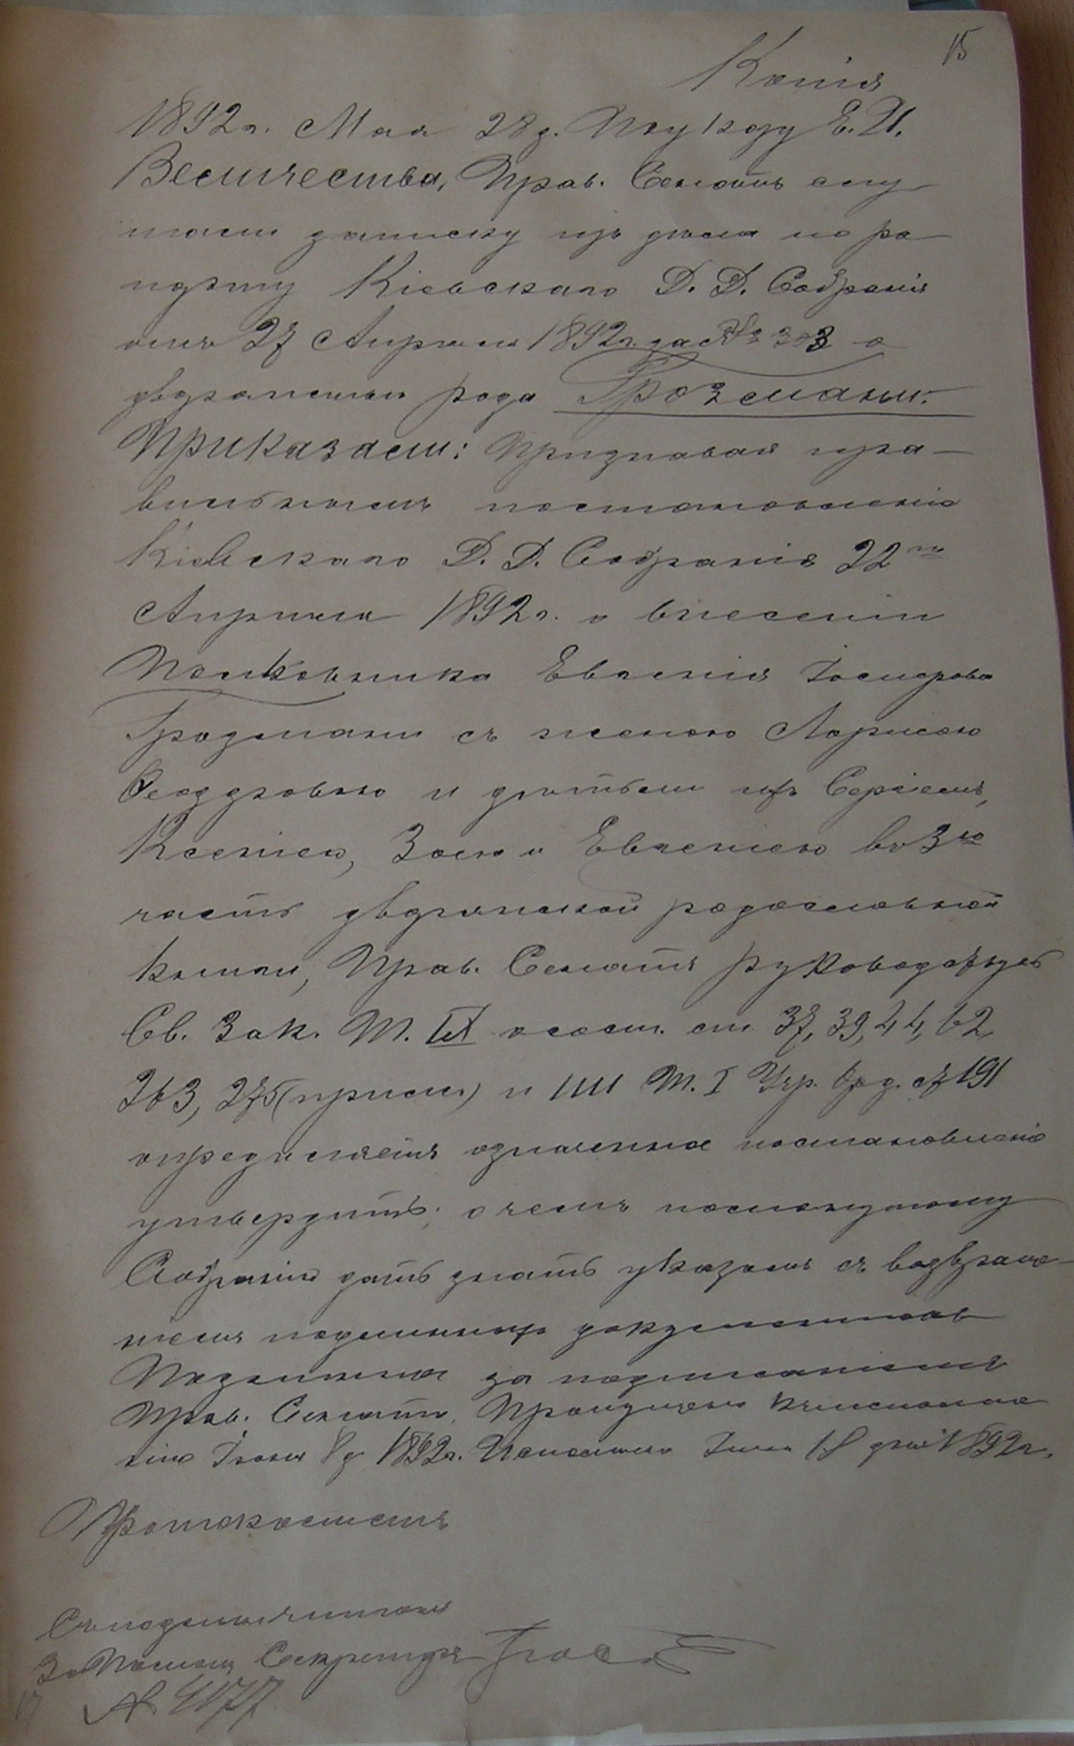 15
Копія
1892 г. Мая 28 д. По указу Е. И.
Величества, Прав. Сенатъ слу-
шали записку изъ дѣла по ра-
порту Кіевскаго Д. Д. Собранія
отъ 27 Апрѣля 1892 г. за № 303 о
дворянствѣ рода
Приказали: Признавая пра-
вильнымъ постановленіе
Кіевскаго Д. Д. Собранія 22го
Апрѣля 1892 г. о внесеніи
Полковника Евгенія Іосифова
съ женою Ларисою
Ѳеодоровою и дѣтьми ихъ Сергіемъ,
Ксеніею, Зоею и Евгеніею въ 3ю
часть дворянской родословной
книги, Прав. Сенатъ руководствуясь
Св. Зак. Т. IX о сост. ст. 37, 39, 44, 62,
263, 275 (прим.) и 1111 Т. I Учр. 191
опредѣляетъ означенное постановленіе
утвердить; о чемъ послать тому
Собранію дать знать указомъ съ возвраще-
ніемъ подлинныхъ документовъ
Подлинное за подписаніемъ
Прав. Сената.
Іюня 8 д 1892 г. Исполнено Іюля 18 дня 1892 г.
Съ подлиннымъ
За Помощ. Секретаря
№ 4177